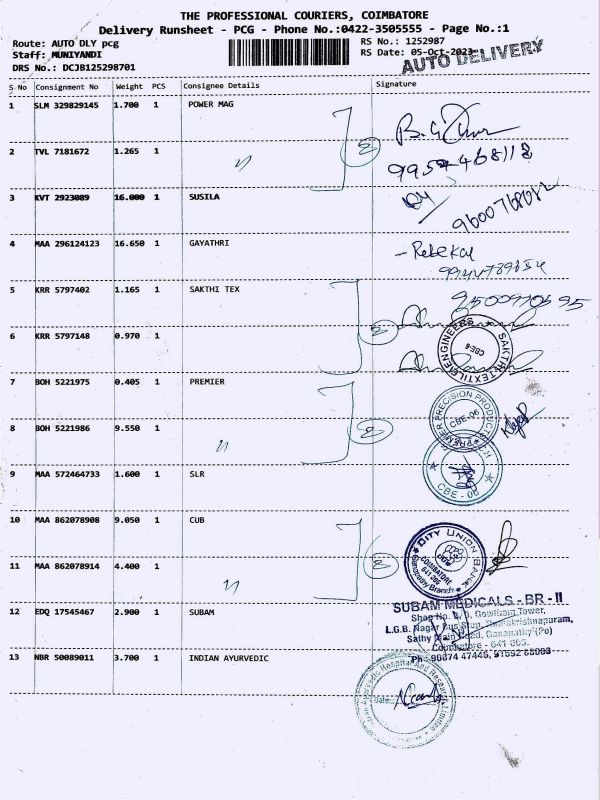 THE PROFESSIONAL COURIERS, COIMBATORE
Delivery Runsheet - PCG - Phone No.:0422-3505555 - Page No.:1
Route: AUTO DLY pcg RS No.: 1252987
Staff: MUNIYANDI RS Date: 05-Oct-2023
DRS No.: DCJB125298701 AUTO DELIVERY
S No Consignment No Weight PCS Consignee Details Signature
1 SLM 329829145 1.700 1 POWER MAG
2 TVL 7181672 1.265 1 "
3 KVT 2923089 16.000 1 SUSILA
9600768682
4 MAA 296124123 16.650 1 GAYATHRI
5 KRR 5797402 1.165 1 SAKTHI TEX
6 KRR 5797148 0.970 1
SAKTHI TEXTILE ENGINEERS
CBE-6
7 BOH 5221975 0.405 1 PREMIER
PREMIER PRECISION PRODUCTS
CBE-06
8 BOH 5221986 9.550 1 "
9 MAA 572464733 1.600 1 SLR
CBE - 06
10 MAA 862078908 9.050 1 CUB
CITY UNION BANK
COIMBATORE
641 006
Ganapathy Branch
11 MAA 862078914 4.400 1 "
12 EDQ 17545467 2.900 1 SUBAM
SUBAM MEDICALS - BR - II
Shop No. Gowtham Tower,
L.G.B. Nagar Bus Stop, Ramakrishnapuram,
Sathy Main Road, Ganapathy (Po)
Coimbatore - 641 006.
Ph : 90874 47446,
13 NBR 50089011 3.700 1 INDIAN AYURVEDIC
Ayurvedic Hospital And Research
Date: